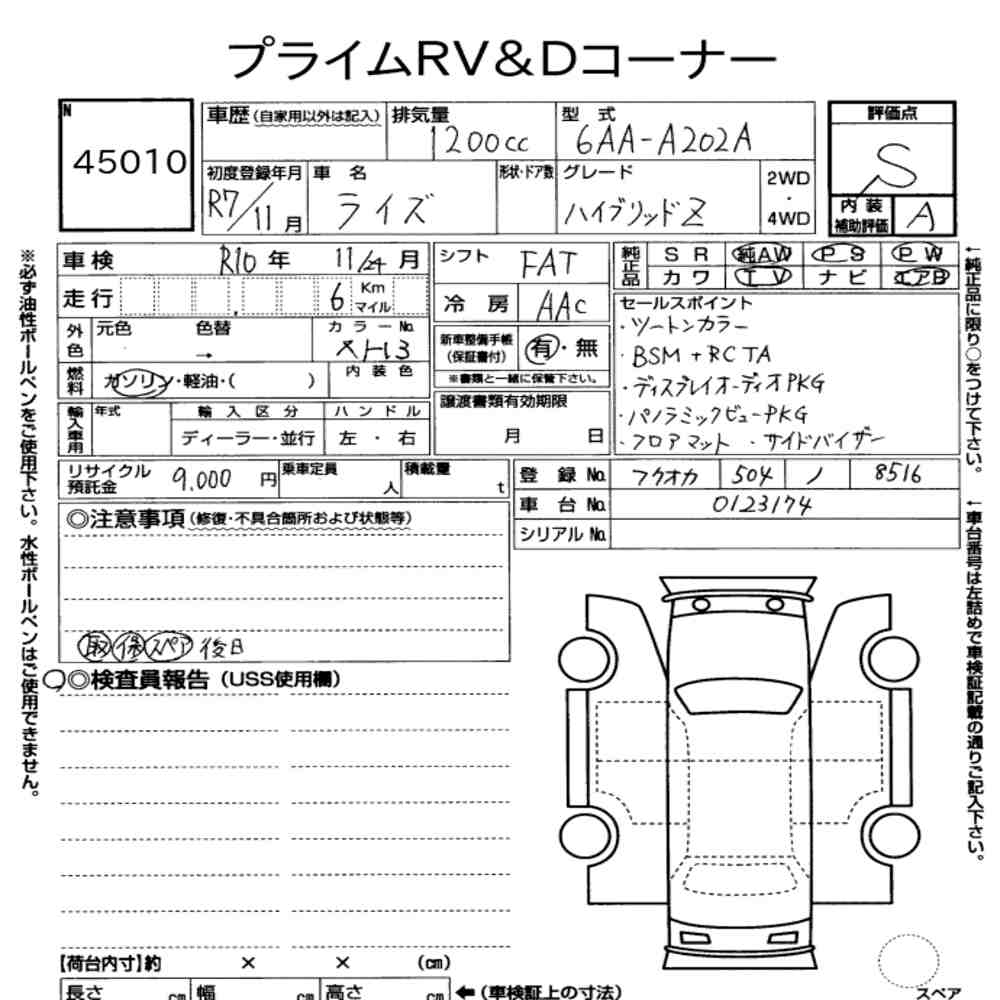 プライムRV&Dコーナー
N
45010
車歴(自家用以外は記入)
排気量
1200cc
型式
6AA-A202A
評価点
S
初度登録年月
R7/11月
車名
ライズ
形状・ドア数
グレード
ハイブリッドZ
2WD
・
4WD
内装
補助評価
A
車検
R10年 11/24月
シフト
FAT
純正品
SR 純AW PS PW
カワ TV ナビ エアB
走行
6 Km
マイル
冷房
AAC
セールスポイント
・ツートンカラー
・BSM+RCTA
・ディスプレイオーディオPKG
・パノラミックビューPKG
・フロアマット ・サイドバイザー
外色
元色 色替
→
カラーNo.
新車整備手帳
(保証書付)
有・無
※書類と一緒に保管下さい。
燃料
ガソリン・軽油・( )
内装色
譲渡書類有効期限
月 日
輸入車用
年式
輸入区分
ディーラー・並行
ハンドル
左・右
リサイクル
預託金
9,000円
乗車定員
人
積載量
t
登録No.
フクオカ 504 ノ 8516
車台No.
0123174
シリアルNo.
◎注意事項(修復・不具合箇所および状態等)
取 保 スペア 後日
◎検査員報告(USS使用欄)
【荷台内寸】約 × × (cm)
長さ cm 幅 cm 高さ cm
←(車検証上の寸法)
スペア
※必ず油性ボールペンをご使用下さい。水性ボールペンはご使用できません。
←純正品に限り○をつけて下さい。
←車台番号は左詰めで車検証記載の通りご記入下さい。